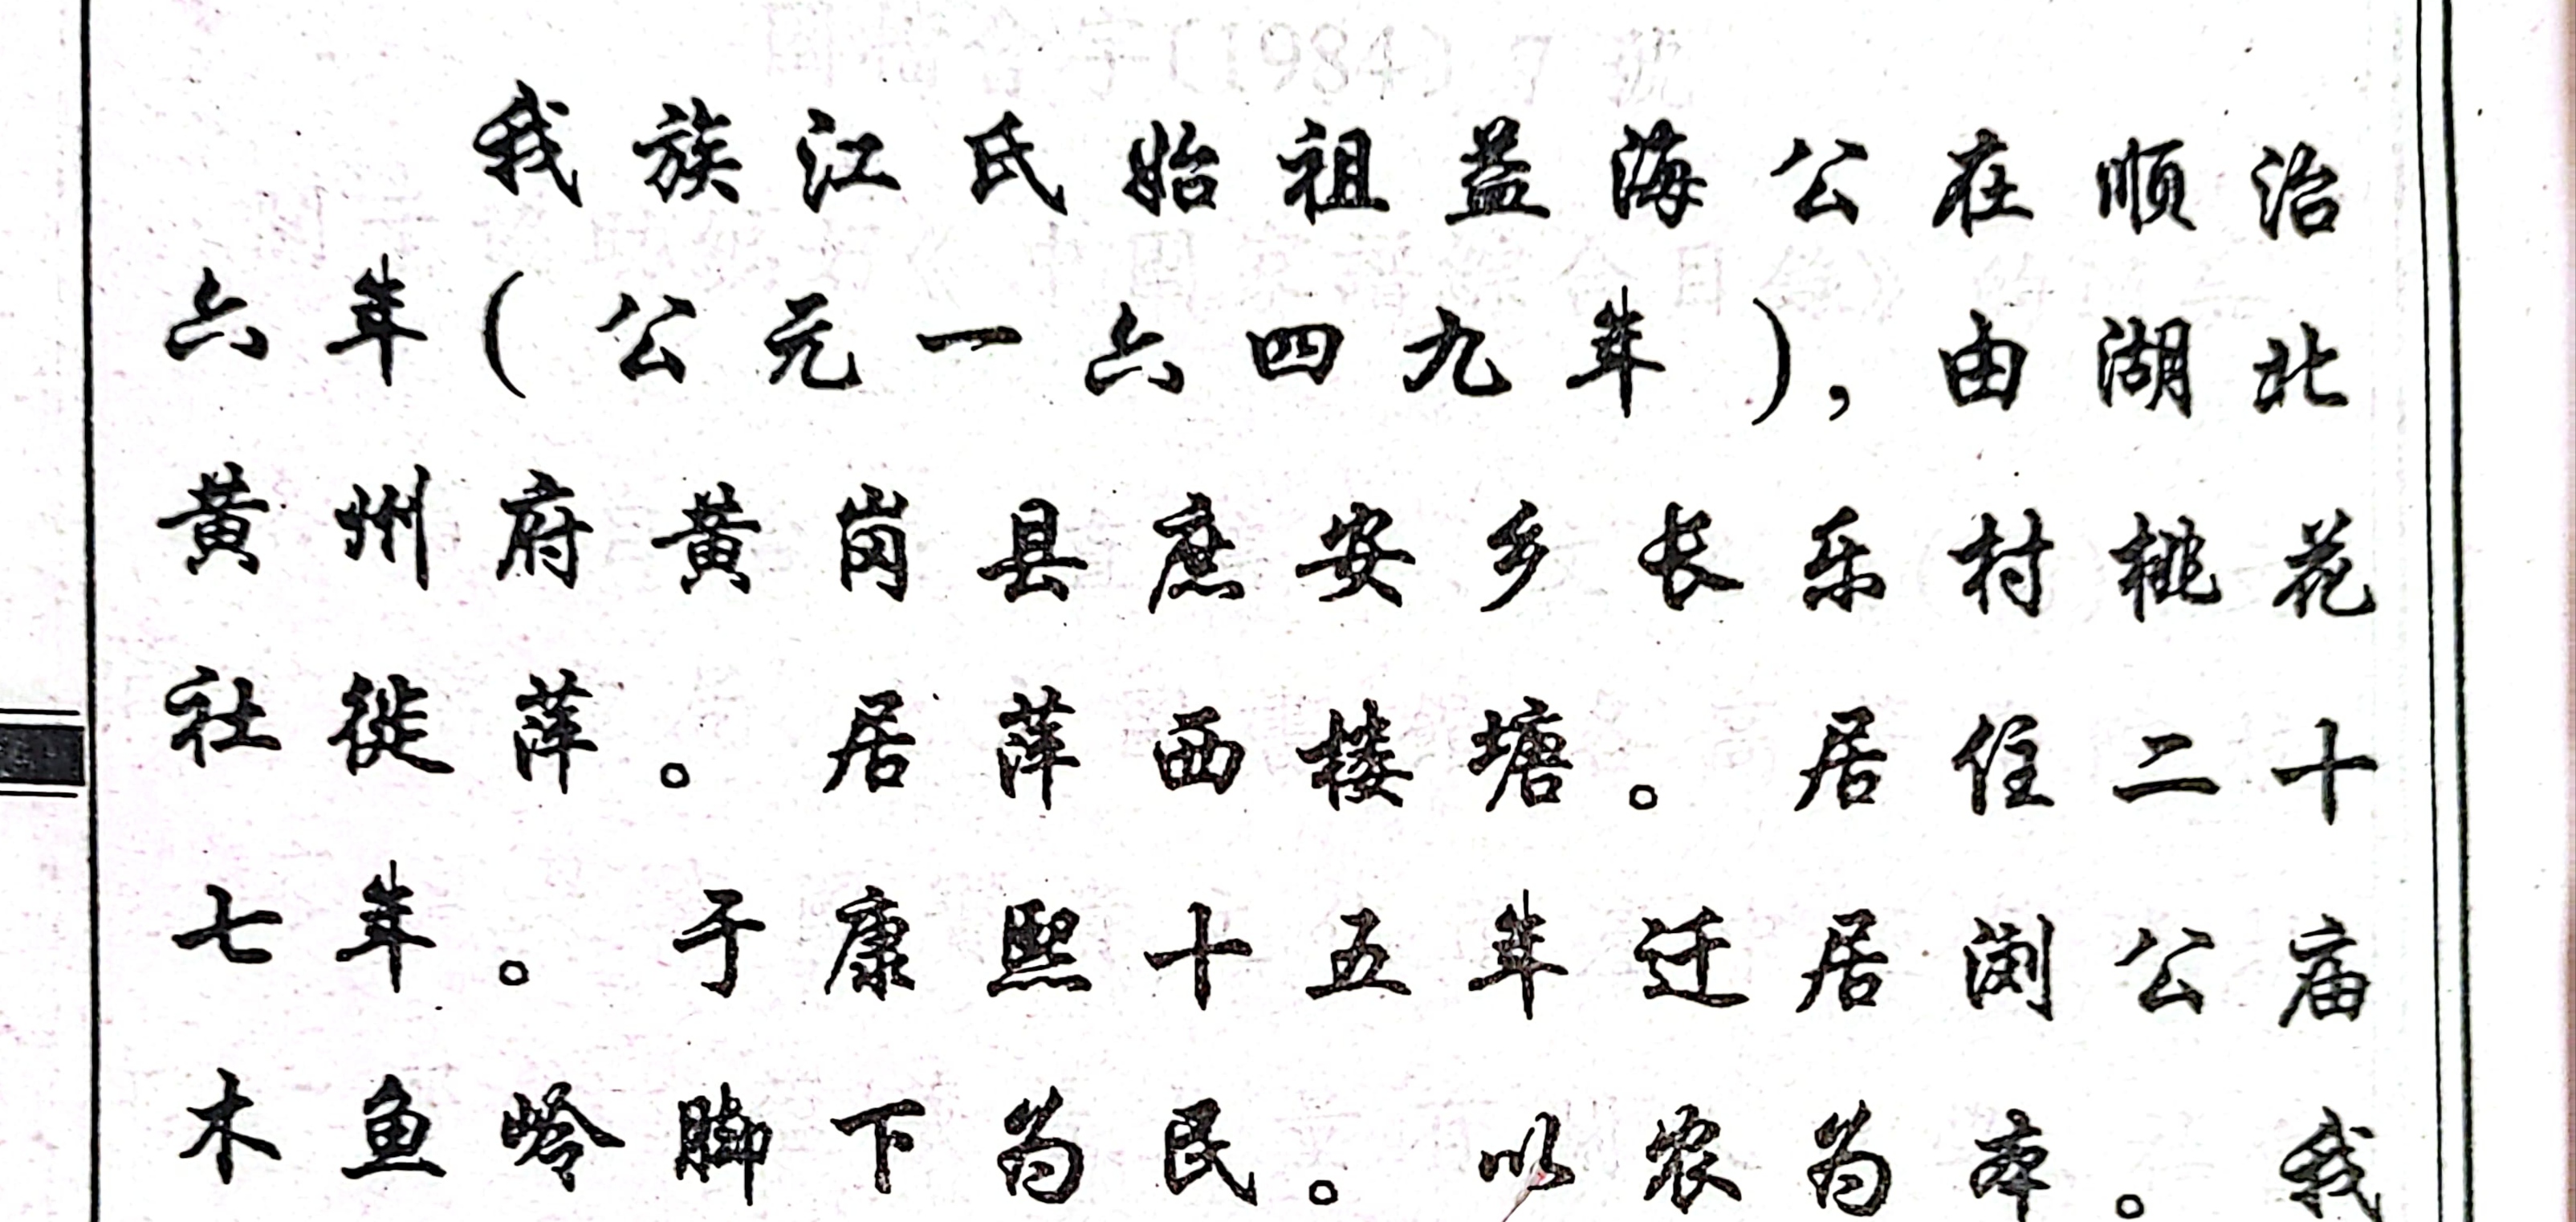 我族江氏始祖益海公在顺治
六年(公元一六四九年),由湖北
黄州府黄岗县庶安乡长乐村桃花
社徙萍。居萍西楼塘。居住二十
七年。于康熙十五年迁居浏公庙
木鱼岭脚下为民。以农为本。我